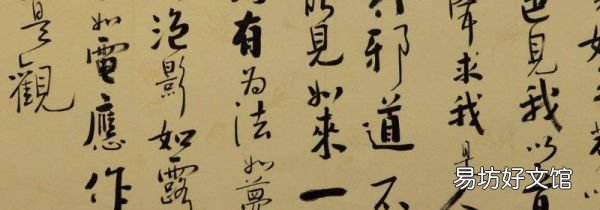 色見我以音
聲求我是人
行邪道不
能見如來一
有为法如夢
泡影如露
如電應作
是觀
易坊好文馆